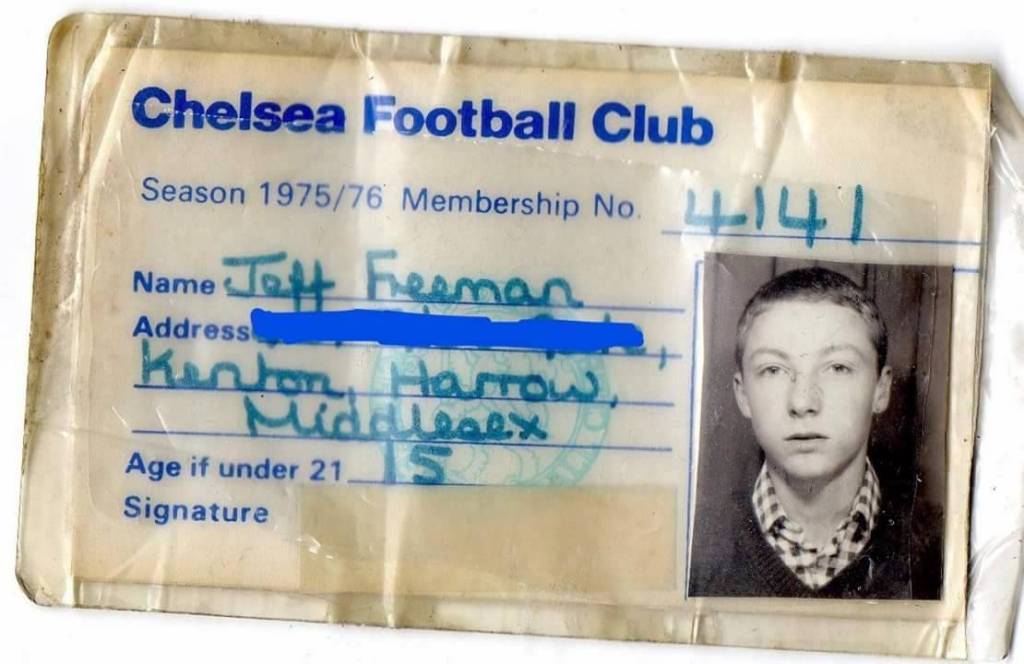 Chelsea Football Club
Season 1975/76 Membership No. 4141
Name Jeff Freeman
Address
Kenton, Harrow,
Middlesex
Age if under 21 15
Signature